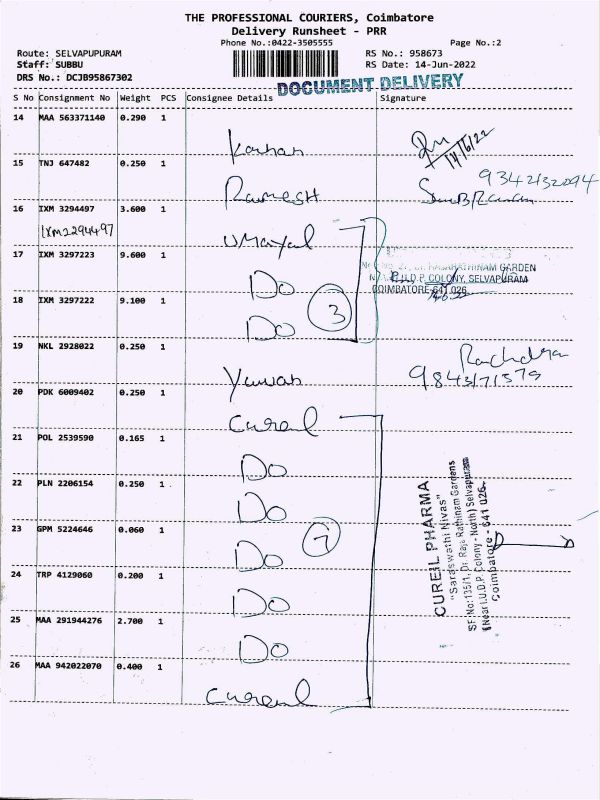 THE PROFESSIONAL COURIERS, Coimbatore
Delivery Runsheet - PRR
Phone No.:0422-3505555 Page No.:2
Route: SELVAPUPURAM RS No.: 958673
Staff: SUBBU RS Date: 14-Jun-2022
DRS No.: DCJB95867302
DOCUMENT DELIVERY
S No Consignment No Weight PCS Consignee Details Signature
14 MAA 563371140 0.290 1
14/6/22
15 TNJ 647482 0.250 1
Ramesh
9342132094
16 IXM 3294497 3.600 1
IXM2294497
Umayal
17 IXM 3297223 9.600 1
RAJARATHINAM GARDEN
COLONY, SELVAPURAM
COIMBATORE-641 026
Do
3
18 IXM 3297222 9.100 1
Do
19 NKL 2928022 0.250 1
Yuvan
20 PDK 6009402 0.250 1
Cureil
21 POL 2539590 0.165 1
Do
22 PLN 2206154 0.250 1
Do
23 GPM 5224646 0.060 1
Do
7
24 TRP 4129060 0.200 1
Do
25 MAA 291944276 2.700 1
Do
26 MAA 942022070 0.400 1
Cureil
CUREIL PHARMA
"Saraswathi Nivas"
SF.No:135/1, Dr. Raja Rathinam Gardens
(Near I.U.D.P. Colony - North) Selvapuram
Coimbatore - 641 026.